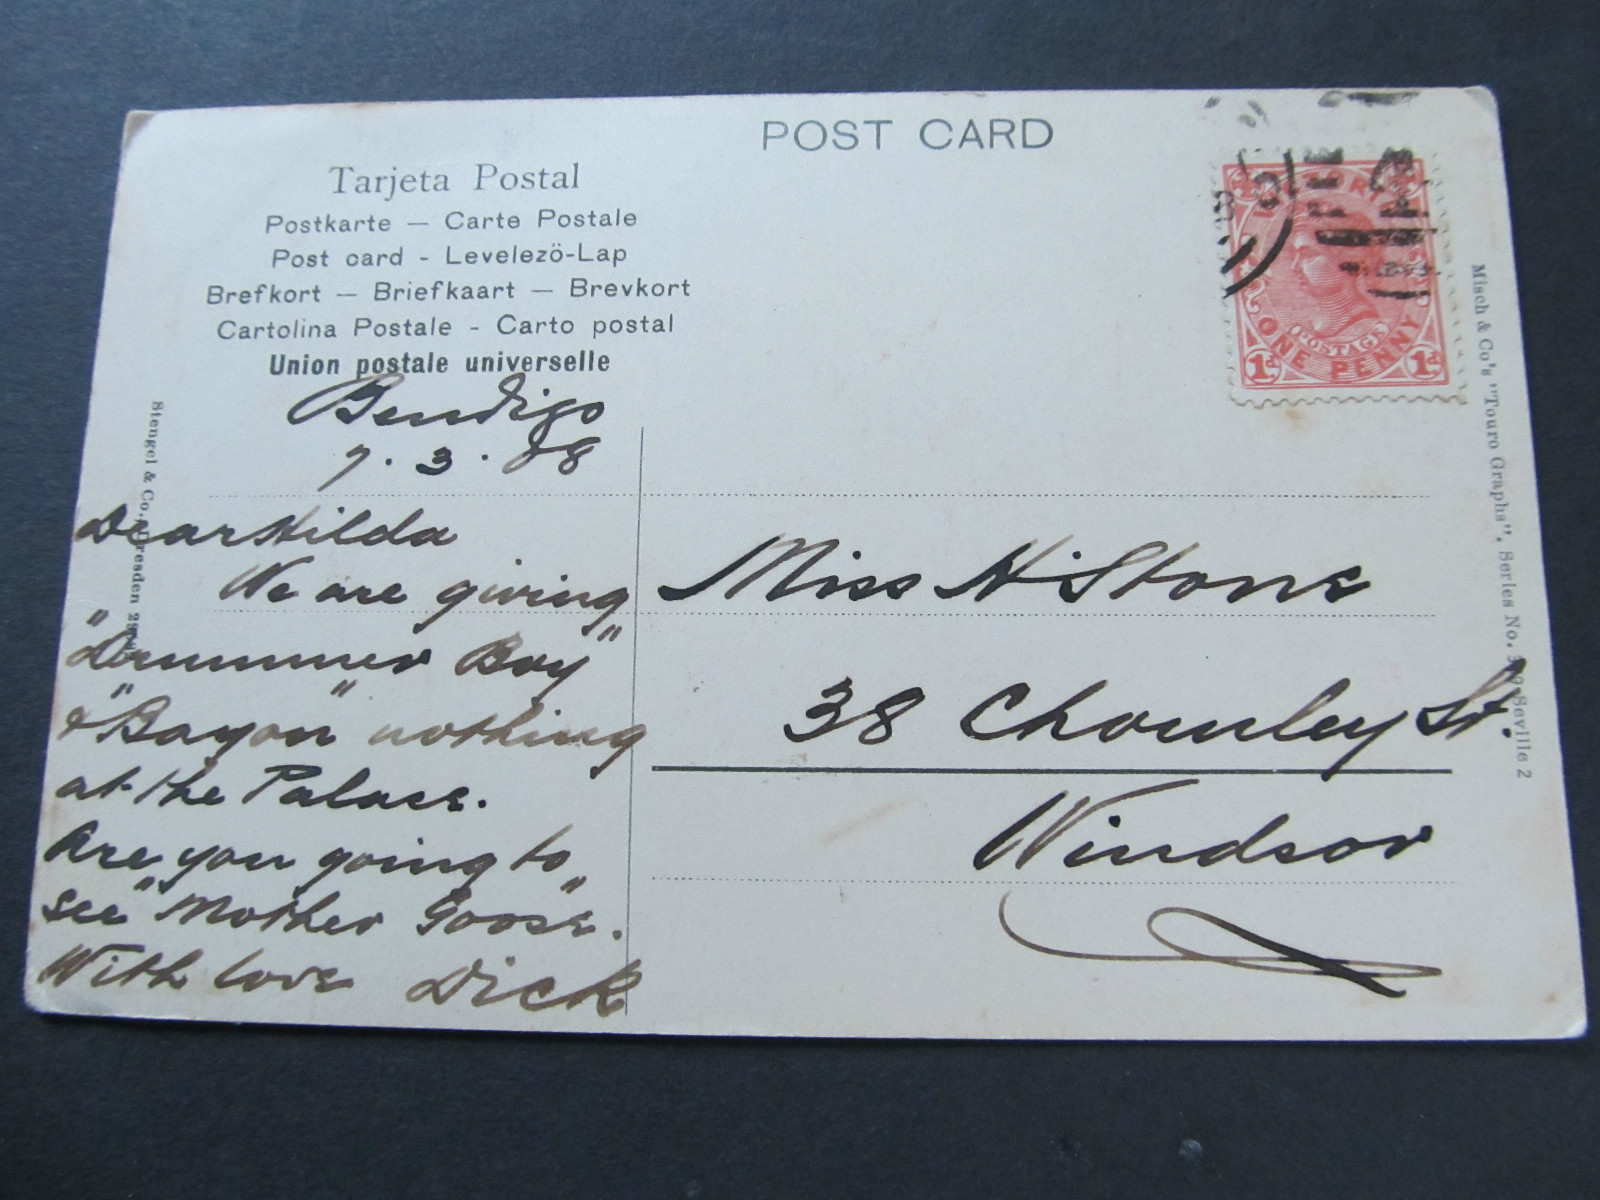 POST CARD
Tarjeta Postal
Postkarte — Carte Postale
Post card - Levelezö-Lap
Brefkort — Briefkaart — Brevkort
Cartolina Postale - Carto postal
Union postale universelle
Bendigo
7. 3. 08
Dear Hilda
We are giving
"Drummer Boy"
& "Bayon" nothing
at the Palace.
Are you going to
see "Mother Goose".
With love Dick
Miss H Stone
38 Chomley St.
Windsor
POSTAGE
ONE PENNY
1d 1d
Stengel & Co., Dresden
Misch & Co's "Touro Graphs", Series No. Seville 2